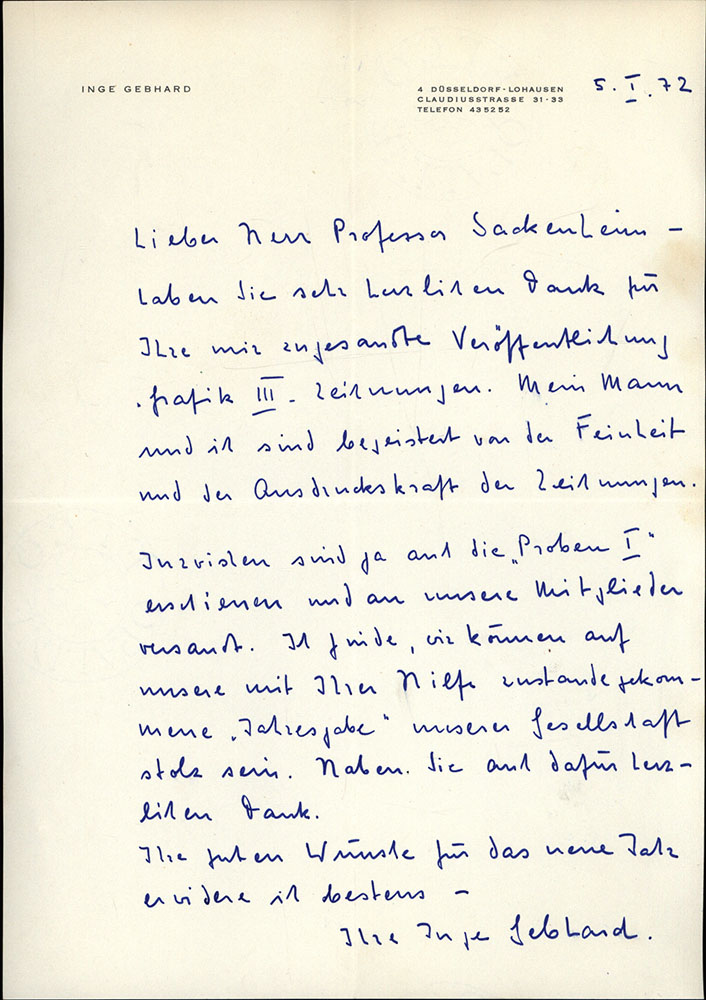 INGE GEBHARD
4 DÜSSELDORF-LOHAUSEN
CLAUDIUSSTRASSE 31-33
TELEFON 435252
5. I. 72
Lieber Herr Professor Sackenheim –
haben Sie sehr herzlichen Dank für
Ihre mir zugesandte Veröffentlichung
„grafik III – Zeichnungen. Mein Mann
und ich sind begeistert von der Feinheit
und der Ausdruckskraft der Zeichnungen.
Inzwischen sind ja auch die „Proben I“
erschienen und an unsere Mitglieder
versandt. Ich finde, wir können auf
unsere mit Ihrer Hilfe zustandegekom-
mene „Jahresgabe“ unserer Gesellschaft
stolz sein. Haben Sie auch dafür herz-
lichen Dank.
Ihre guten Wünsche für das neue Jahr
erwidere ich bestens –
Ihre Inge Gebhard.